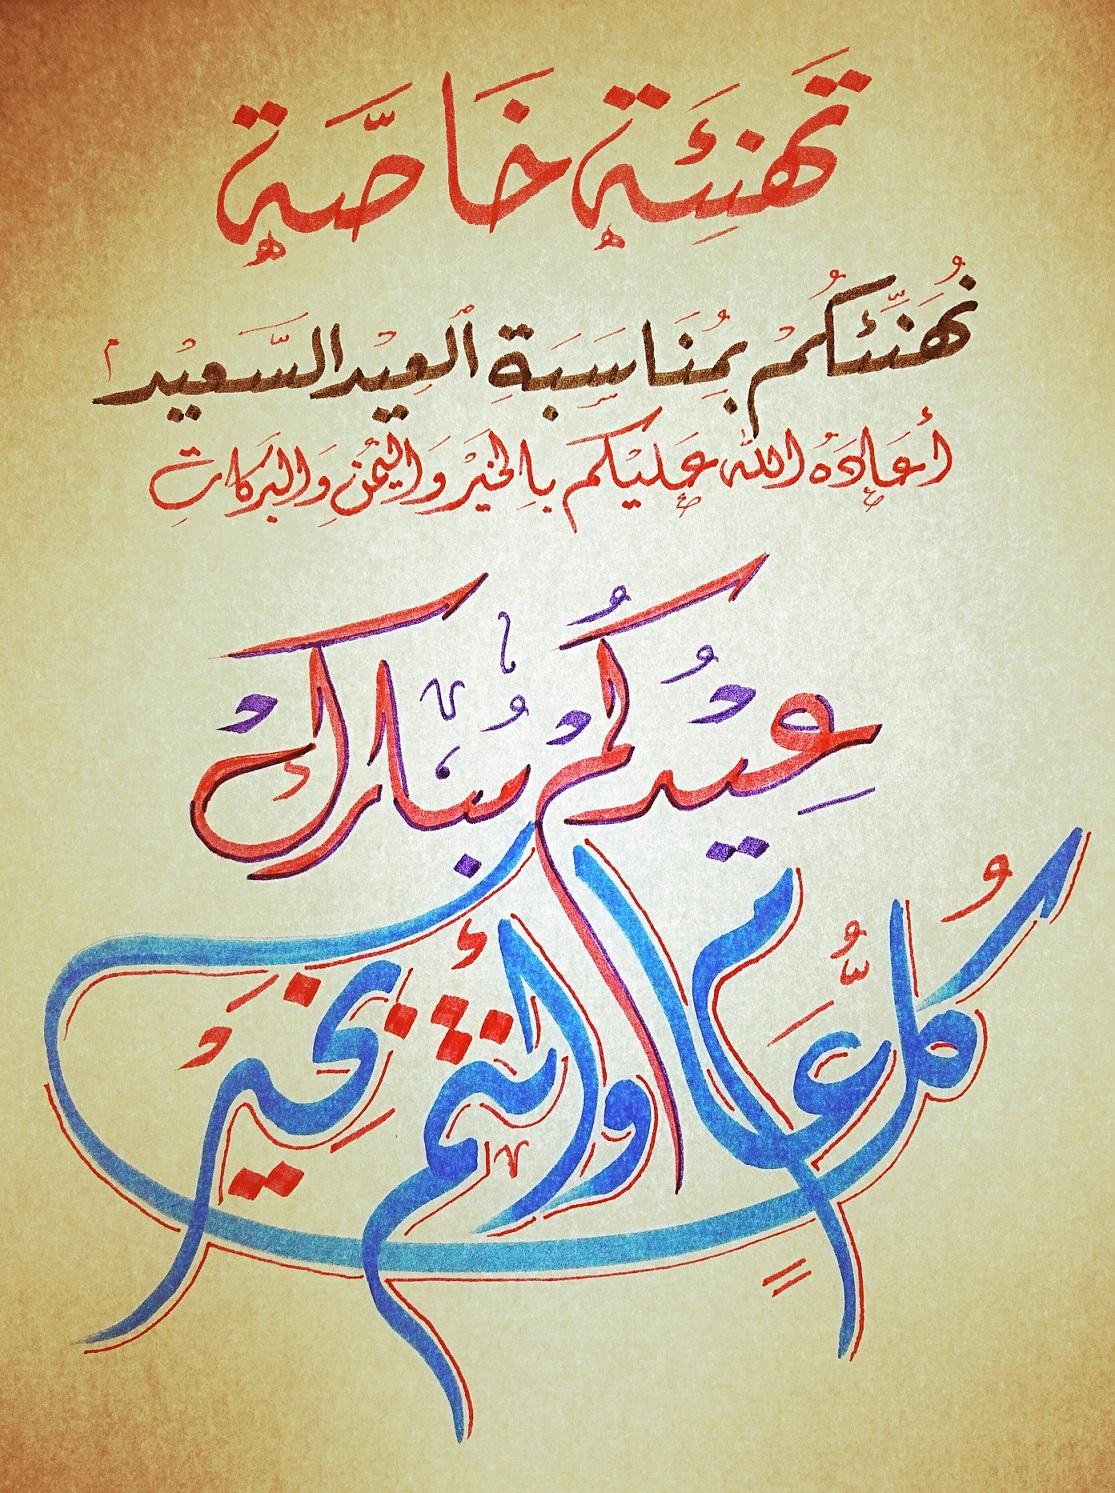 تَهنِئَة خَاصَّة
نُهَنِّئُكُمْ بِمُنَاسَبَةِ الْعِيْدِ السَّعِيْد
أَعَادَهُ الله عَلَيْكُم بِالخَيْرِ وَاليُمْنِ وَالبَرَكَاتِ
عِيْدُكُمْ مُبَارَكْ
كُلُّ عَامٍ وَأَنْتُمْ بِخَيْرْ